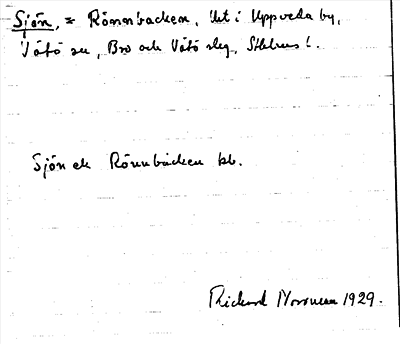 Sjön, = Rönnbacken, Ut i Uppveda by,
Vätö sn, Bro och Vätö slg, Sthlms l.
Sjön el. Rönnbäcken bb.
Rickard 1929.